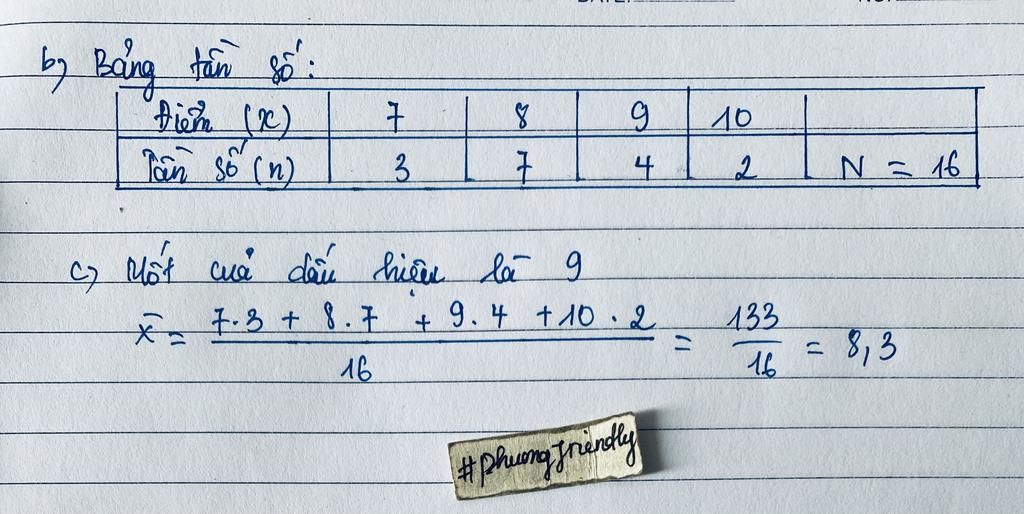 b) Bảng tần số:
Điểm (x) 7 8 9 10
Tần số (n) 3 7 4 2 N = 16
c) Mốt của dấu hiệu là 9
x̄ = (7.3 + 8.7 + 9.4 + 10.2)/16 = 133/16 = 8,3
#phuongfriendly